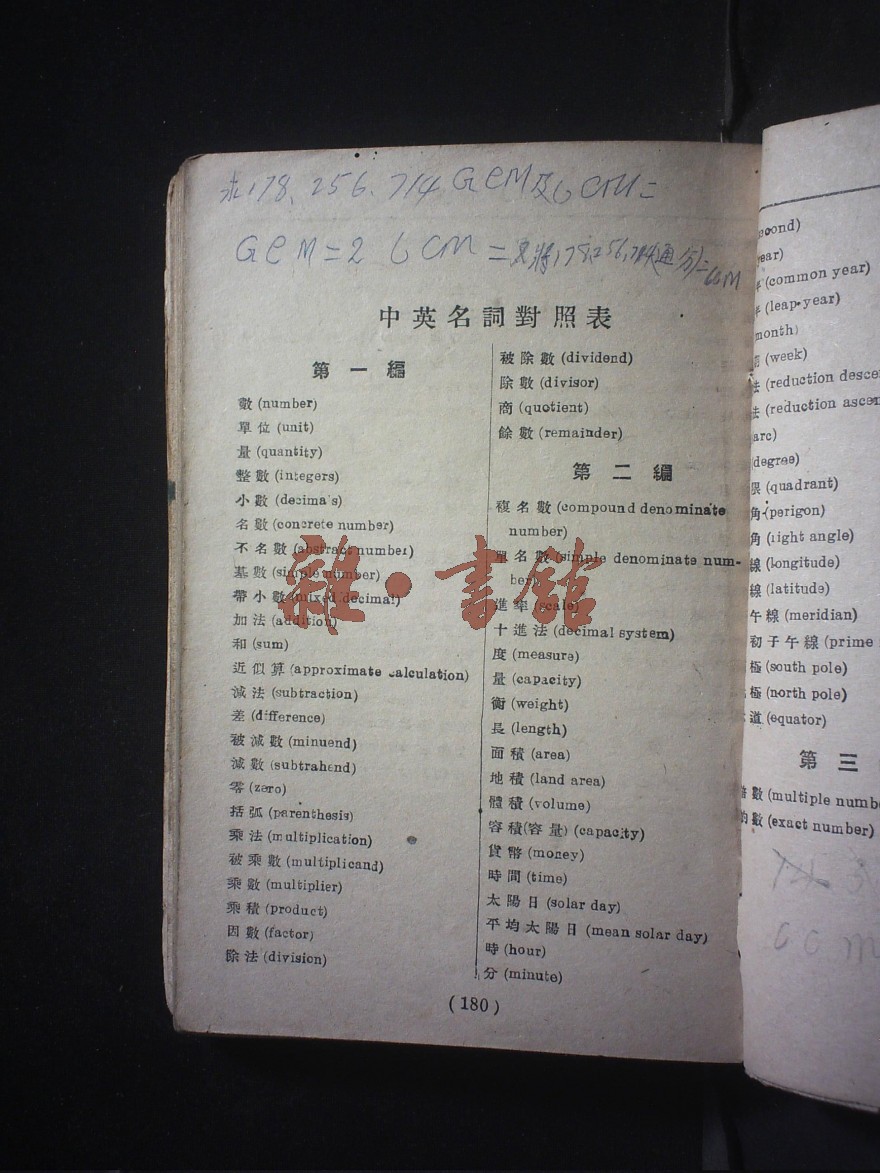 求178、256、714 GCM及LCM=
GCM=2 LCM=又將178,256,714(通分)=LCM
中英名詞對照表
第一編
數 (number)
單位 (unit)
量 (quantity)
整數 (integers)
小數 (decima's)
名數 (concrete number)
不名數 (abstract number)
基數 (simple number)
帶小數 (mixed decimal)
加法 (addition)
和 (sum)
近似算 (approximate calculation)
減法 (subtraction)
差 (difference)
被減數 (minuend)
減數 (subtrahend)
零 (zero)
括弧 (parenthesis)
乘法 (multiplication)
被乘數 (multiplicand)
乘數 (multiplier)
乘積 (product)
因數 (factor)
除法 (division)
被除數 (dividend)
除數 (divisor)
商 (quotient)
餘數 (remainder)
第二編
複名數 (compound denominate
number)
單名數 (simple denominate num-
ber)
進率 (scale)
十進法 (decimal system)
度 (measure)
量 (capacity)
衡 (weight)
長 (length)
面積 (area)
地積 (land area)
體積 (volume)
容積(容量) (capacity)
貨幣 (money)
時間 (time)
太陽日 (solar day)
平均太陽日 (mean solar day)
時 (hour)
分 (minute)
(180)
雜·書館
econd)
ear)
(common year)
(leap-year)
month)
(week)
法 (reduction desce
法 (reduction ascen
arc)
degree)
(quadrant)
角 (perigon)
角 (right angle)
線 (longitude)
線 (latitude)
午線 (meridian)
初子午線 (prime
極 (south pole)
極 (north pole)
道 (equator)
第三
數 (multiple numb
約數 (exact number)